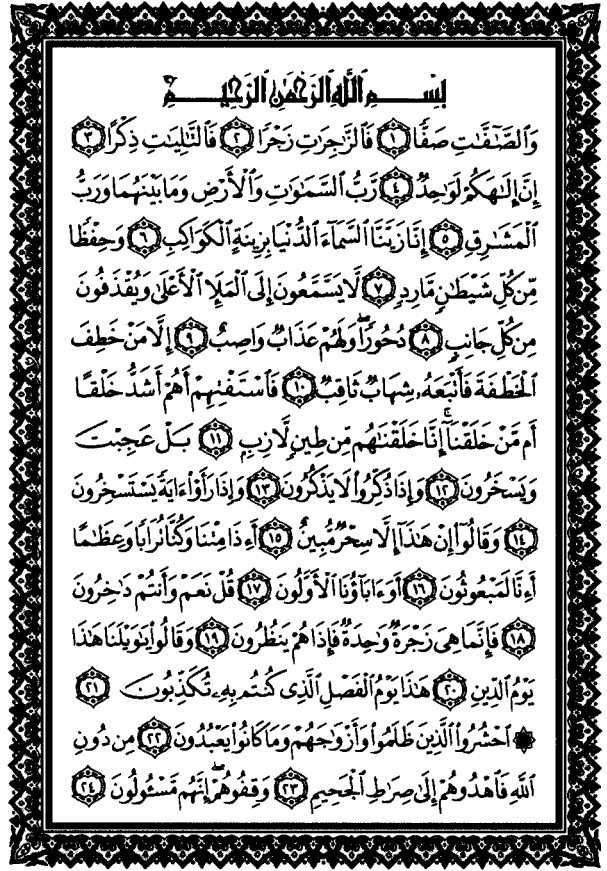 بِسْمِ ٱللَّهِ ٱلرَّحْمَٰنِ ٱلرَّحِيمِ
وَٱلصَّٰٓفَّٰتِ صَفًّا ١ فَٱلزَّٰجِرَٰتِ زَجْرًا ٢ فَٱلتَّٰلِيَٰتِ ذِكْرًا ٣
إِنَّ إِلَٰهَكُمْ لَوَٰحِدٌ ٤ رَّبُّ ٱلسَّمَٰوَٰتِ وَٱلْأَرْضِ وَمَا بَيْنَهُمَا وَرَبُّ
ٱلْمَشَٰرِقِ ٥ إِنَّا زَيَّنَّا ٱلسَّمَآءَ ٱلدُّنْيَا بِزِينَةٍ ٱلْكَوَاكِبِ ٦ وَحِفْظًا
مِّن كُلِّ شَيْطَٰنٍ مَّارِدٍ ٧ لَّا يَسَّمَّعُونَ إِلَى ٱلْمَلَإِ ٱلْأَعْلَىٰ وَيُقْذَفُونَ
مِن كُلِّ جَانِبٍ ٨ دُحُورًا ۖ وَلَهُمْ عَذَابٌ وَاصِبٌ ٩ إِلَّا مَنْ خَطِفَ
ٱلْخَطْفَةَ فَأَتْبَعَهُۥ شِهَابٌ ثَاقِبٌ ١٠ فَٱسْتَفْتِهِمْ أَهُمْ أَشَدُّ خَلْقًا
أَم مَّنْ خَلَقْنَآ ۚ إِنَّا خَلَقْنَٰهُم مِّن طِينٍ لَّازِبٍ ١١ بَلْ عَجِبْتَ
وَيَسْخَرُونَ ١٢ وَإِذَا ذُكِّرُوا۟ لَا يَذْكُرُونَ ١٣ وَإِذَا رَأَوْا۟ ءَايَةً يَسْتَسْخِرُونَ
١٤ وَقَالُوٓا۟ إِنْ هَٰذَآ إِلَّا سِحْرٌ مُّبِينٌ ١٥ أَءِذَا مِتْنَا وَكُنَّا تُرَابًا وَعِظَٰمًا
أَءِنَّا لَمَبْعُوثُونَ ١٦ أَوَءَابَآؤُنَا ٱلْأَوَّلُونَ ١٧ قُلْ نَعَمْ وَأَنتُمْ دَٰخِرُونَ
١٨ فَإِنَّمَا هِىَ زَجْرَةٌ وَٰحِدَةٌ فَإِذَا هُمْ يَنظُرُونَ ١٩ وَقَالُوا۟ يَٰوَيْلَنَا هَٰذَا
يَوْمُ ٱلدِّينِ ٢٠ هَٰذَا يَوْمُ ٱلْفَصْلِ ٱلَّذِى كُنتُم بِهِۦ تُكَذِّبُونَ ٢١
۞ ٱحْشُرُوا۟ ٱلَّذِينَ ظَلَمُوا۟ وَأَزْوَٰجَهُمْ وَمَا كَانُوا۟ يَعْبُدُونَ ٢٢ مِن دُونِ
ٱللَّهِ فَٱهْدُوهُمْ إِلَىٰ صِرَٰطِ ٱلْجَحِيمِ ٢٣ وَقِفُوهُمْ ۖ إِنَّهُم مَّسْـُٔولُونَ ٢٤